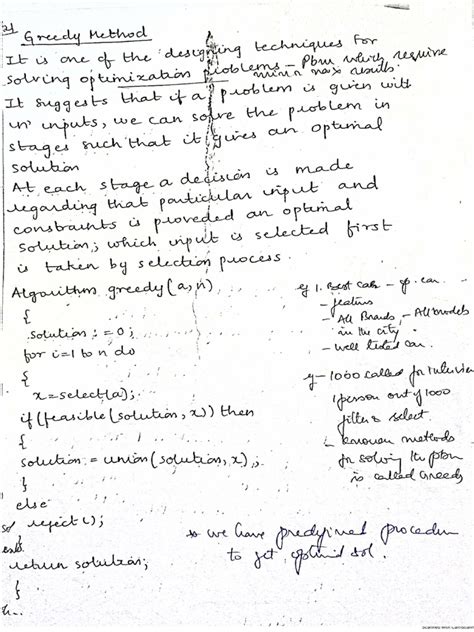 Greedy Method
It is one of the designing techniques for
solving optimization problems – Pbm which require
min or max results.
It suggests that if a problem is given with
'n' inputs, we can solve the problem in
stages such that it gives an optimal
solution
At each stage a decision is made
regarding that particular input and
constraints is proveded an optimal
solution; which input is selected first
is taken by selection process.
Algorithm greedy(a,n)
{
solution := 0;
for i=1 to n do
{
x=select(a);
if(feasible(solution, x)) then
{
solution = union(solution, x);
}
else
reject();
}
return solution;
}
eg 1. Best car – car
– features
– All Brands – All models
in the city
– well tested car.
eg – 1000 called for interview
1 person out of 1000
filter & select
– known methods
for solving the pbm
is called Greedy
so we have predefined procedure
to get optimal sol.